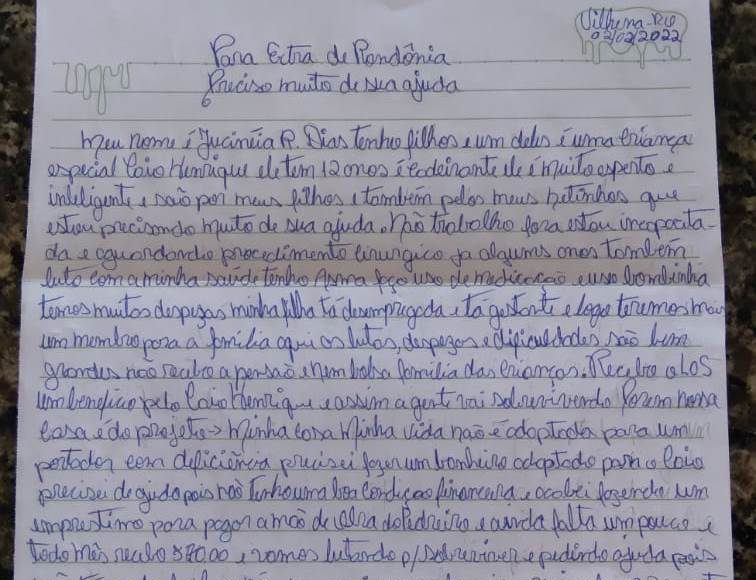 Vilhena-RO
02/02/2022
Para Extra de Rondônia
Preciso muito de sua ajuda
Meu nome é Jucinéia R. Dias tenho filhos e um deles é uma criança
especial Caio Henrique ele tem 12 anos é cadeirante ele é muito esperto e
inteligente e são por meus filhos e também pelos meus netinhos que
estou precisando muito de sua ajuda. Não trabalho fora estou incapacita-
da e aguardando procedimento cirurgico ja alguns anos também
luto com a minha saúde tenho Asma faço uso de medicação e uso bombinha
temos muitas despezas minha filha tá desempregada e tá gestante e logo teremos mais
um membro para a família aqui as lutas, despezas e dificuldades são bem
grandes não recebo a pensão e nem bolsa família das crianças. Recebo o LOS
um benefício pelo Caio Henrique e assim a gente vai sobrevivendo Porem nossa
casa é do projeto → Minha Casa Minha Vida não é adaptada para um
portador com deficiência precisei fazer um banheiro adaptado para o Caio
precisei de ajuda pois não tenho uma boa condição financeira e acabei fazendo um
emprestimo para pagar a mão de obra do Pedreiro e ainda falta um pouco e
todo mês recebo 870,00 e vamos lutando p/ sobreviver e pedindo ajuda pois